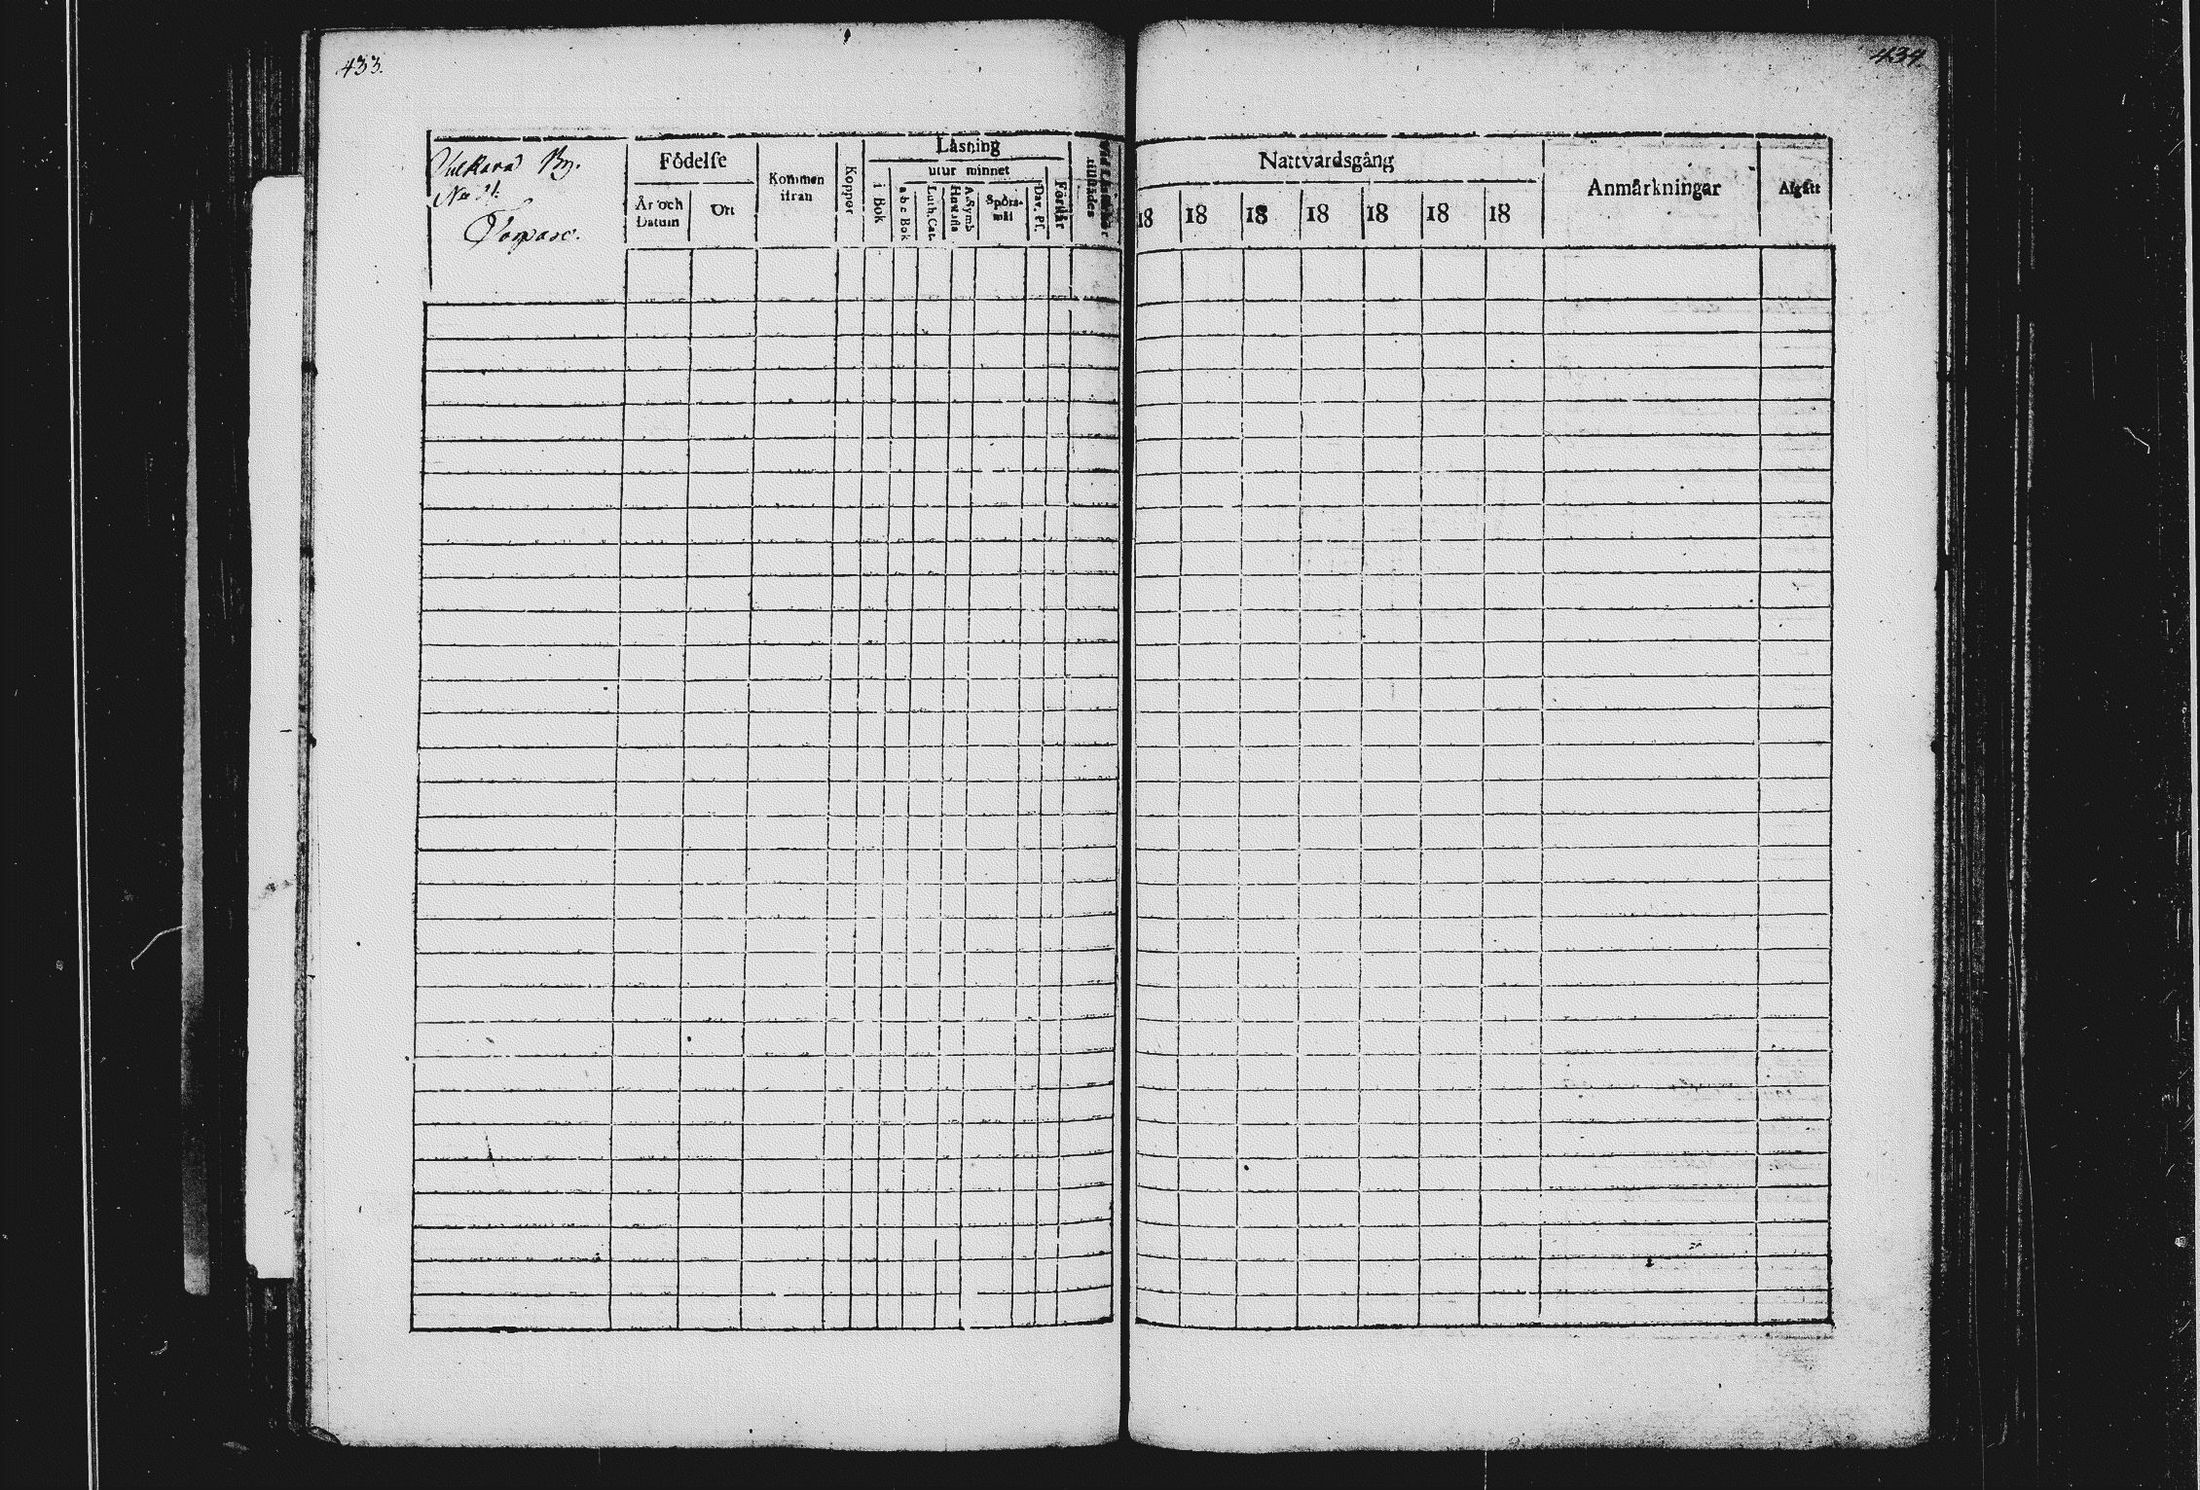 433.
434.
By.
No
Torpare.
Födelse
År och Datum
Ort
Kommen ifrån
Koppor
Läsning
i Bok
utur minnet
a b c Bok
Luth. Cat.
A. Symb
Spörsmål
Dav. Ps.
Förstår
Nattvardsgång
18 18 18 18 18 18 18
Anmärkningar
Afgått